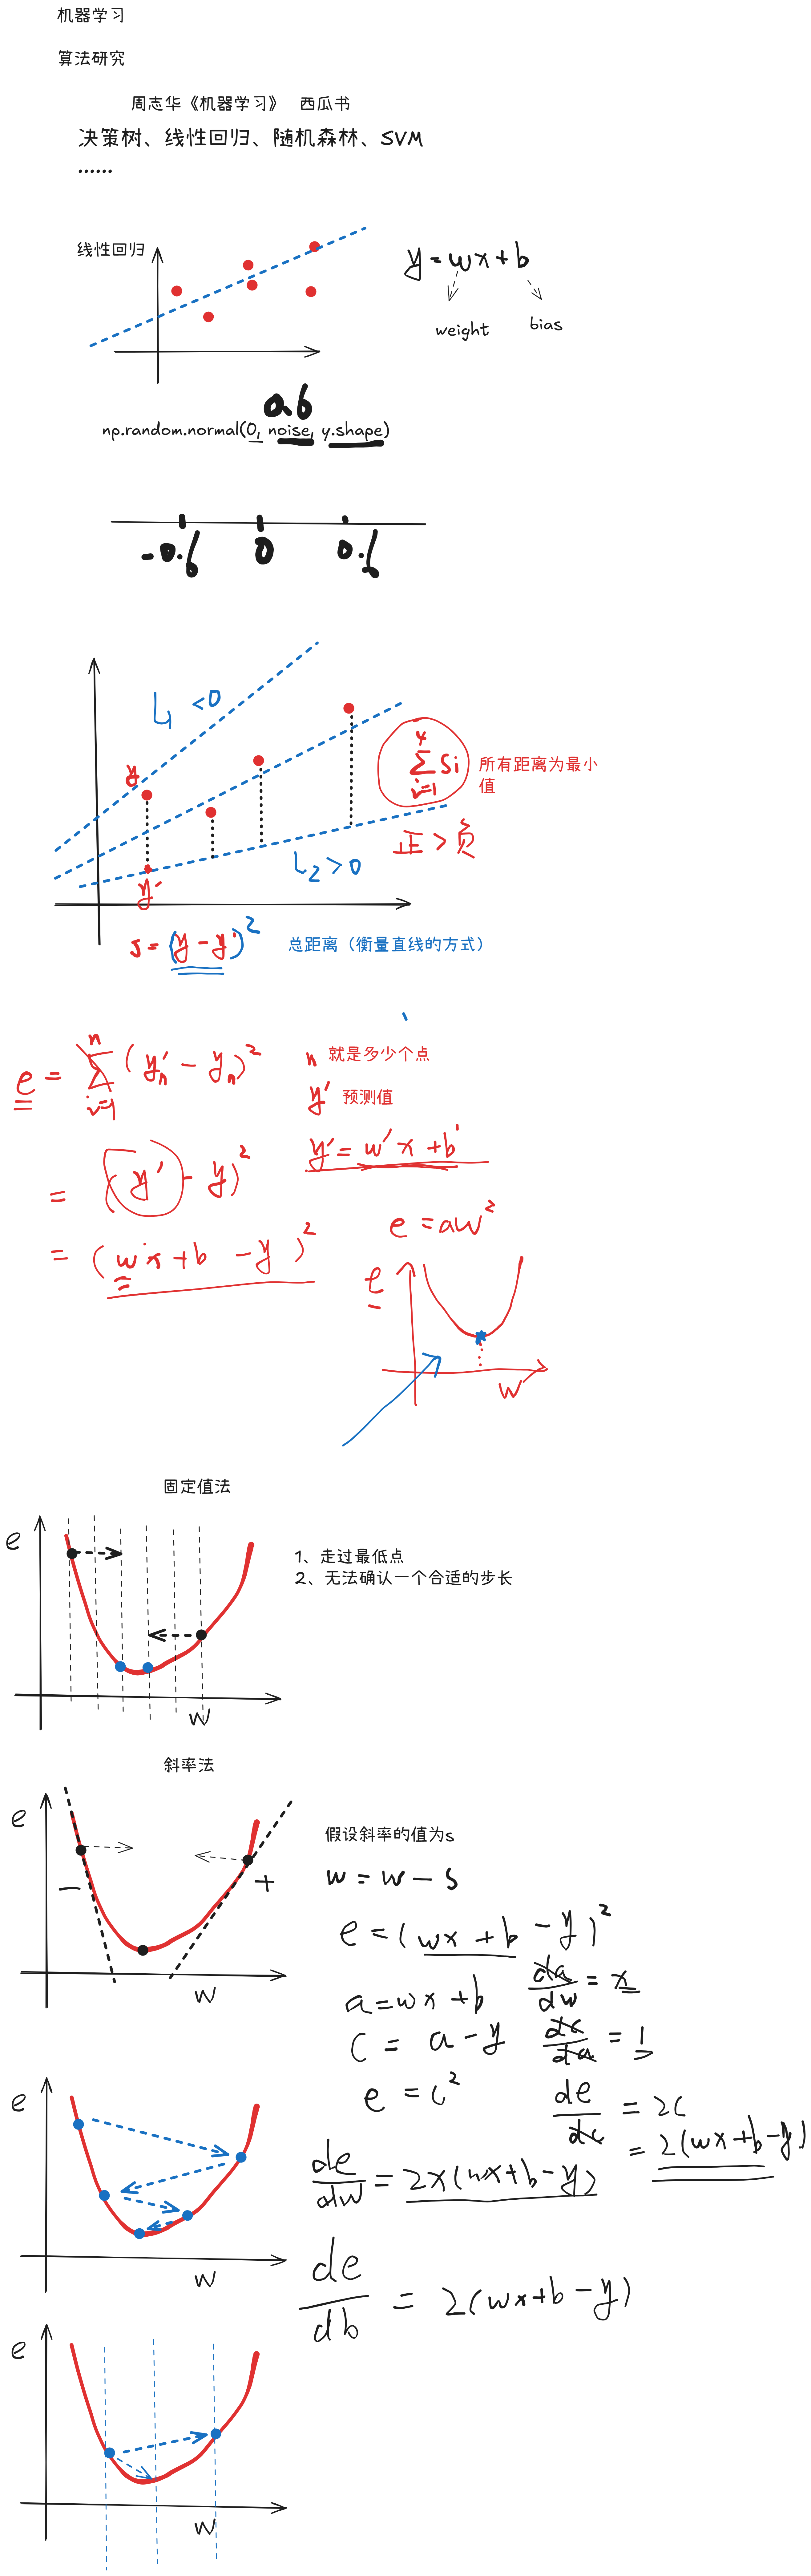 机器学习
算法研究
周志华《机器学习》 西瓜书
决策树、线性回归、随机森林、SVM
......
线性回归
y = wx + b
weight
bias
0.6
np.random.normal(0, noise, y.shape)
-0.6 0 0.6
L1 <0
y
4
∑ Si
i=1
所有距离为最小
值
正 > 负
L2 > 0
y'
s = (y - y')²
总距离（衡量直线的方式）
n
e = ∑ (y'n - yn)²
i=1
n 就是多少个点
y' 预测值
= (y' - y)²
y' = w'x + b'
= (wx + b - y)²
e = aw²
e
w
固定值法
e
1、走过最低点
2、无法确认一个合适的步长
w
斜率法
e
假设斜率的值为s
w = w - s
- +
e = (wx + b - y)²
w
a = wx + b
da/dw = x
c = a - y
dc/da = 1
e
e = c²
de/dc = 2c
= 2(wx + b - y)
de/dw = 2x(wx + b - y)
w
de/db = 2(wx + b - y)
e
w